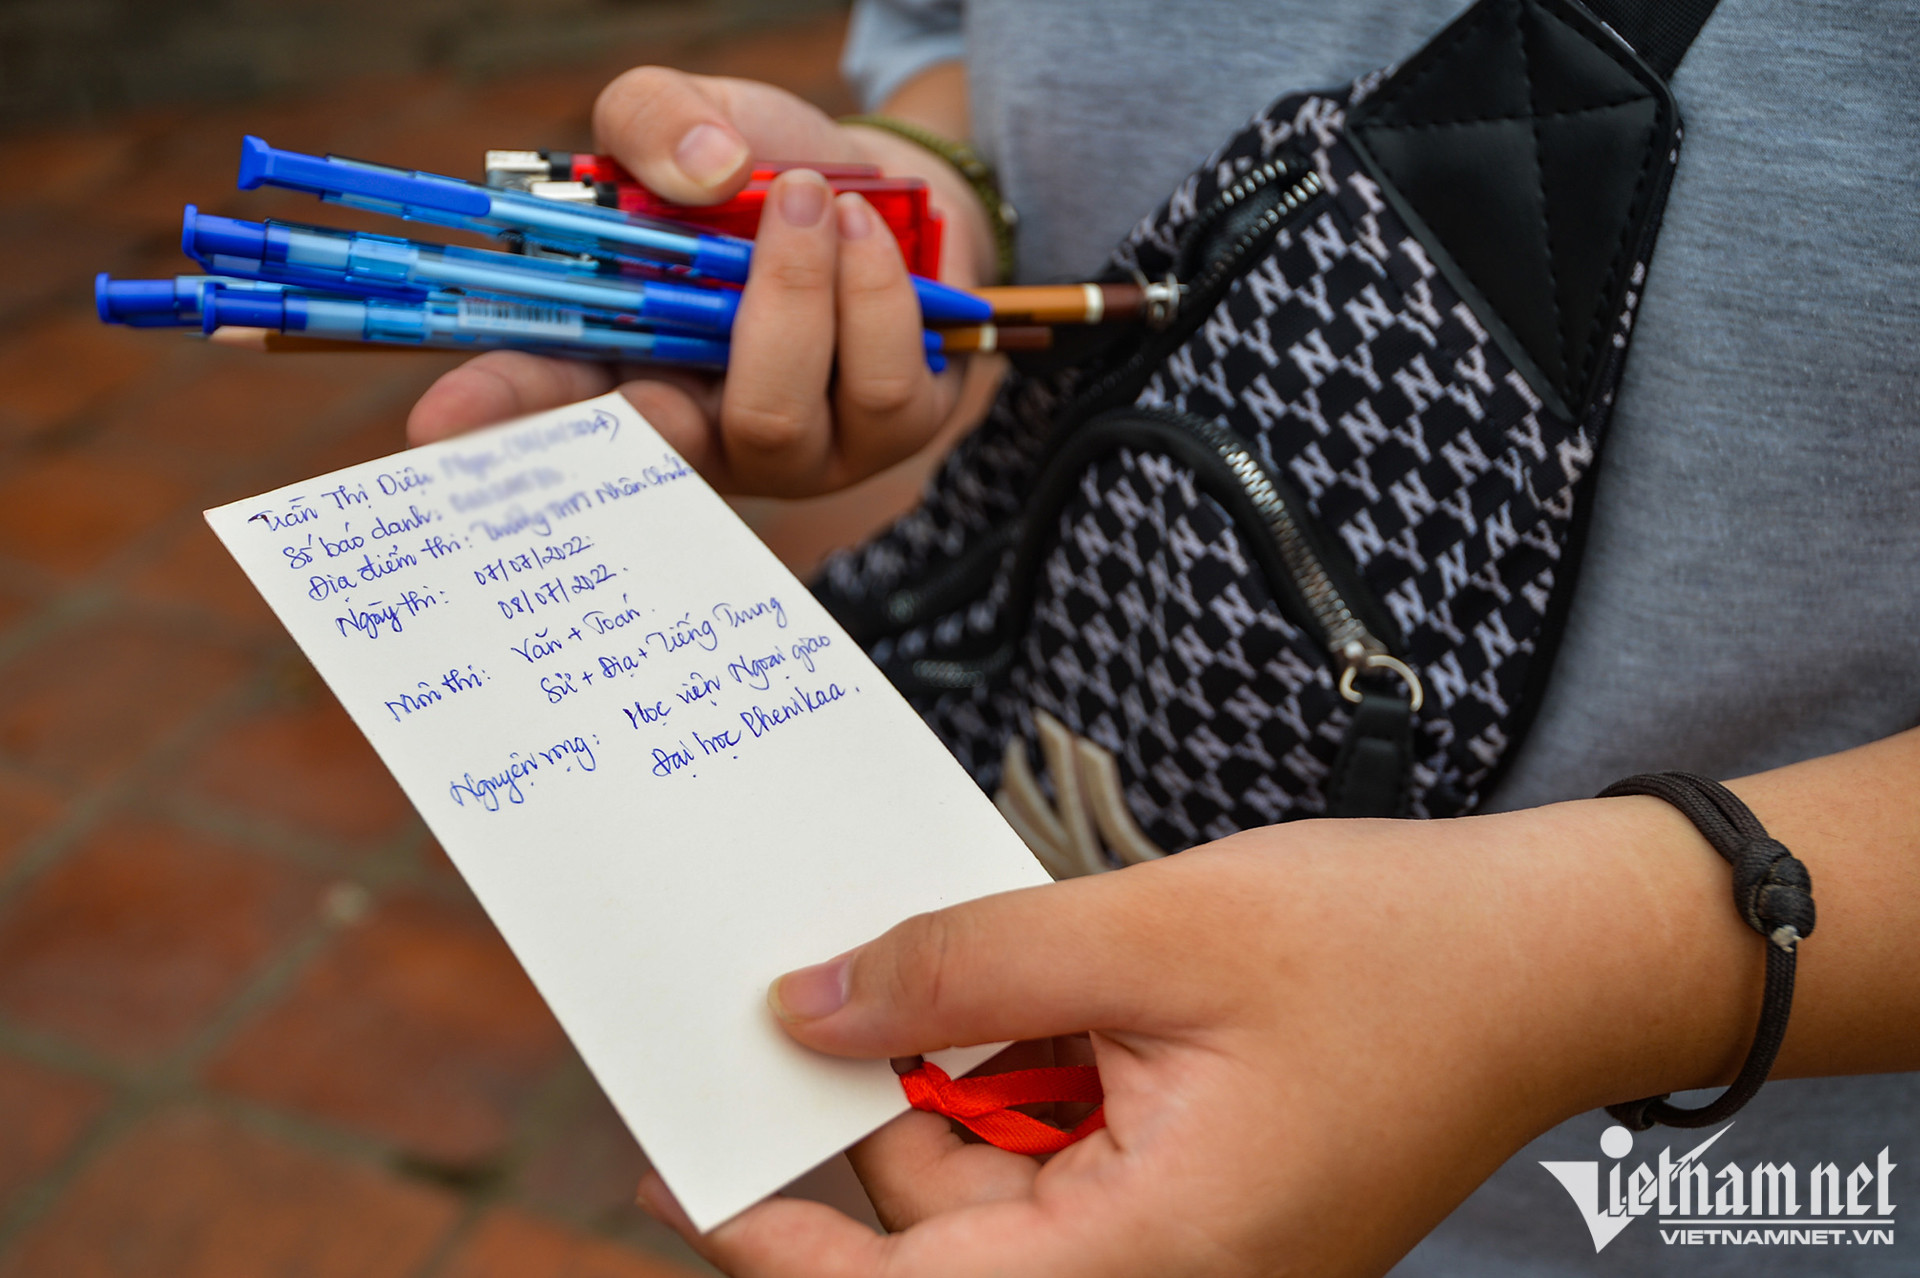 Trần Thị Diệu
Số báo danh:
Địa điểm thi: Trường THPT Nhân Chính
Ngày thi: 07/07/2022:
08/07/2022.
Môn thi: Văn + Toán.
Sử + Địa + Tiếng Trung
Nguyện vọng: Học viện Ngoại giao
Đại học Phenikaa.
Vietnamnet
VIETNAMNET.VN